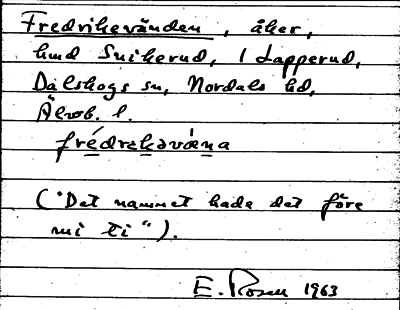 Fredrikevänden, åker,
hmd Snikerud, 1 Lapperud,
Dalskogs sn, Nordals hd,
Älvsb. l.
frédrekəvàna
("Det nammet hade det före
mi ti").
E. Rosen 1963